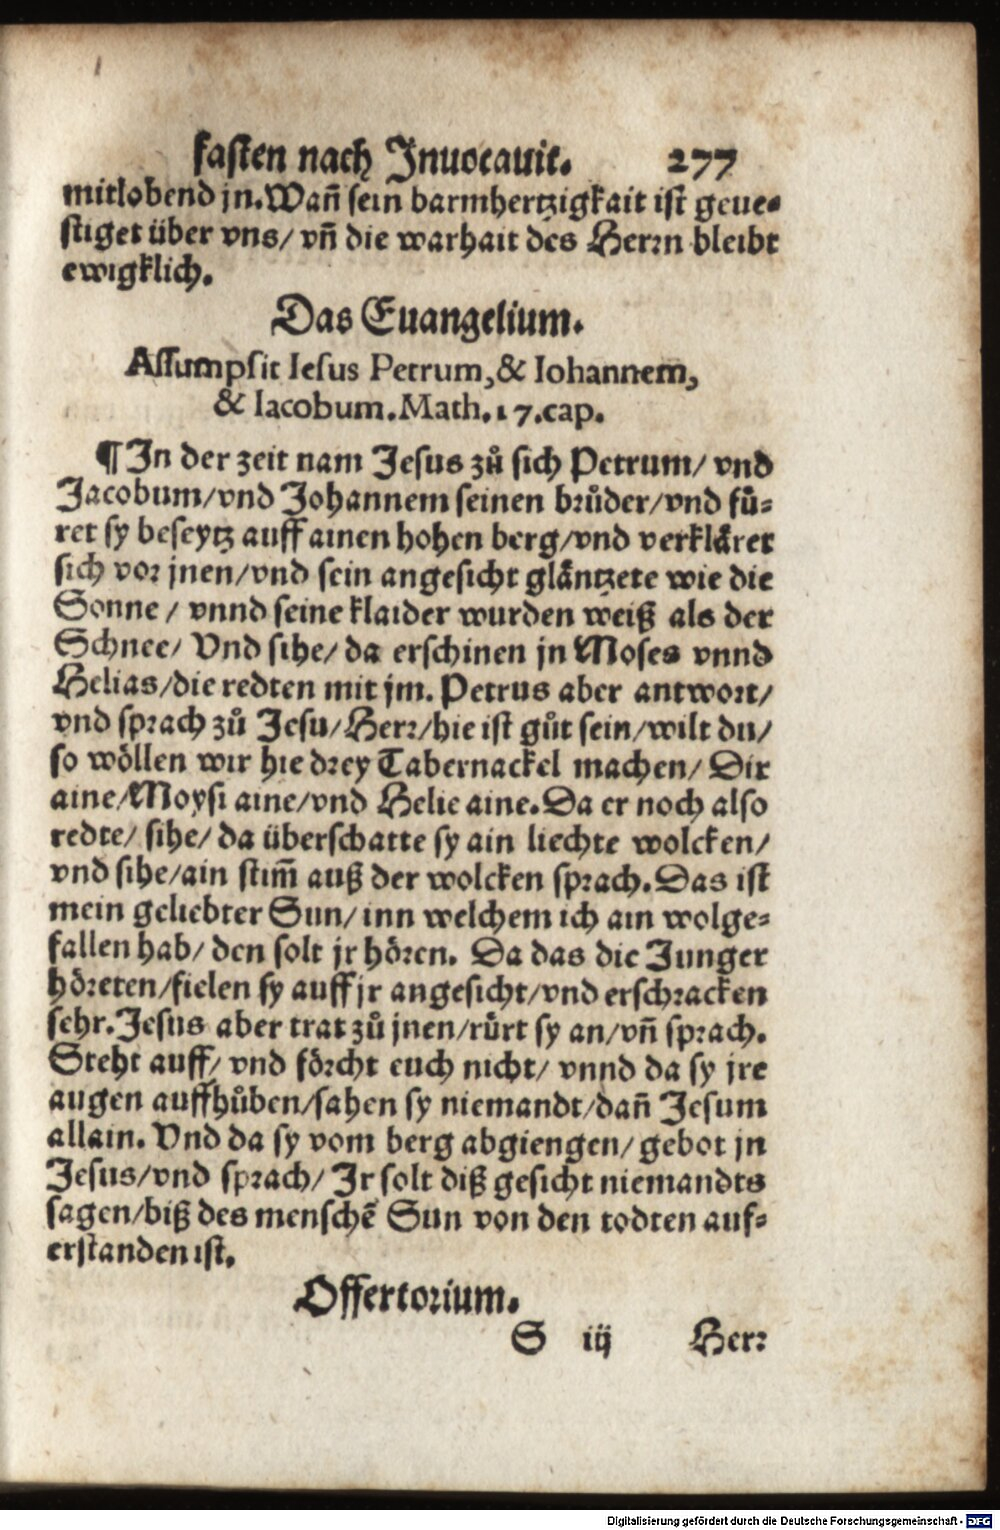 fasten nach Inuocauit. 277
mitlobend jn. Wañ sein barmhertzigkait ist geue-
stiget über vns/ vñ die warhait des Herrn bleibt
ewigklich.
Das Euangelium.
Assumpsit Iesus Petrum, & Iohannem,
& Iacobum. Math. 17. cap.
¶ In der zeit nam Jesus zů sich Petrum/ vnd
Jacobum/ vnd Johannem seinen brůder/ vnd fů-
ret sy beseytz auff ainen hohen berg/ vnd verkläret
sich vor jnen/ vnd sein angesicht gläntzete wie die
Sonne/ vnnd seine klaider wurden weiß als der
Schnee/ Vnd sihe/ da erschinen jn Moses vnnd
Helias/ die redten mit jm. Petrus aber antwort/
vnd sprach zů Jesu/ Herr/ hie ist gůt sein/ wilt du/
so wöllen wir hie drey Tabernackel machen/ Dir
aine/ Moysi aine/ vnd Helie aine. Da er noch also
redte/ sihe/ da überschatte sy ain liechte wolcken/
vnd sihe/ ain stim̃ auß der wolcken sprach. Das ist
mein geliebter Sun/ inn welchem ich ain wolge-
fallen hab/ den solt jr hören. Da das die Junger
höreten/ fielen sy auff jr angesicht/ vnd erschracken
sehr. Jesus aber trat zů jnen/ růrt sy an/ vñ sprach.
Steht auff/ vnd förcht euch nicht/ vnnd da sy jre
augen auffhůben/ sahen sy niemandt/ dañ Jesum
allain. Vnd da sy vom berg abgiengen/ gebot jn
Jesus/ vnd sprach/ Ir solt diß gesicht niemandts
sagen/ biß des menschẽ Sun von den todten auf-
erstanden ist.
Offertorium.
S iij Herr
Digitalisierung gefördert durch die Deutsche Forschungsgemeinschaft - DFG